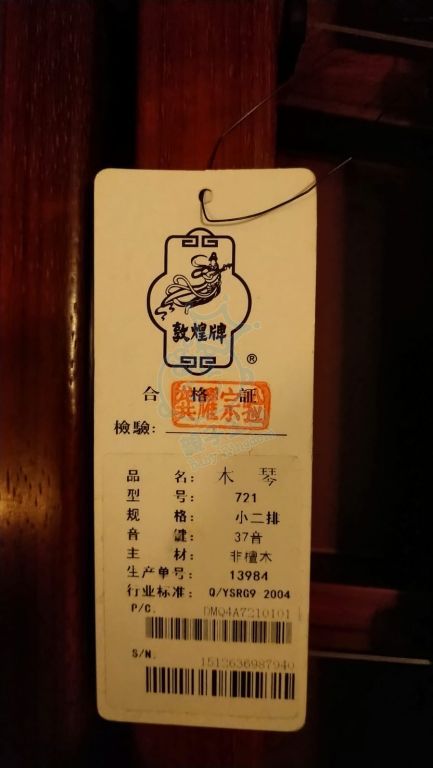 敦煌牌
®
合格証
檢驗:
品名: 木琴
型号: 721
规格: 小二排
音鍵: 37音
主材: 非檀木
生产单号: 13984
行业标准: Q/YSRG9 2004
P/C. DMQ4A7210101
S/N. 1512636987940